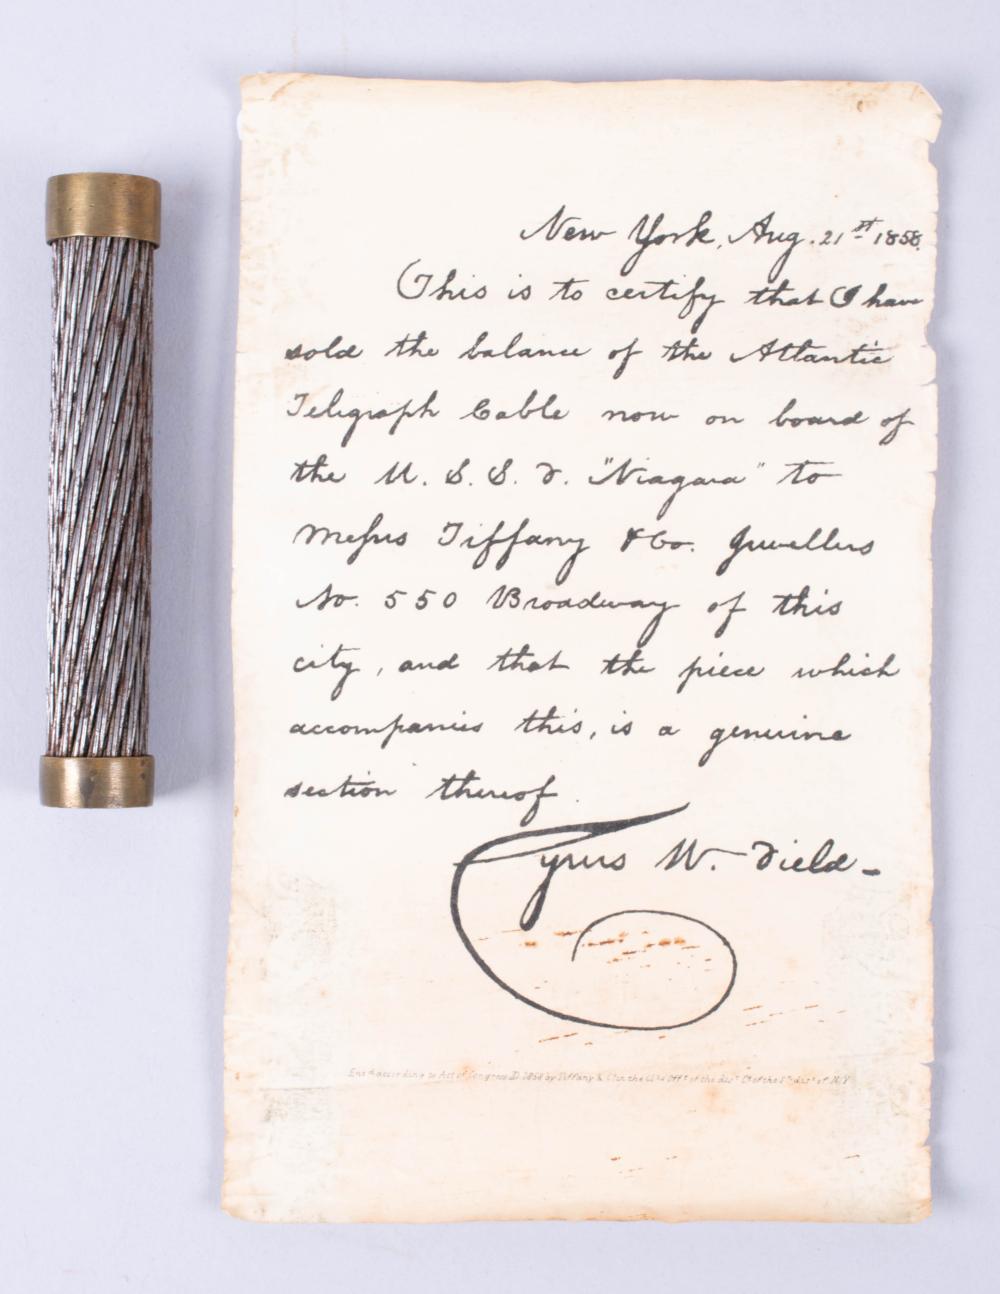 New York, Aug. 21st 1858.
This is to certify that I have
sold the balance of the Atlantic
Telegraph Cable now on board of
the U. S. S. F. "Niagara" to
Messrs Tiffany & Co. Jewellers
No. 550 Broadway of this
city, and that the piece which
accompanies this, is a genuine
section thereof.
Cyrus W. Field-
Entd according to Act of Congress AD 1858 by Tiffany & Co in the Clks Offe of the dist Ct of the Sn dist of N.Y.